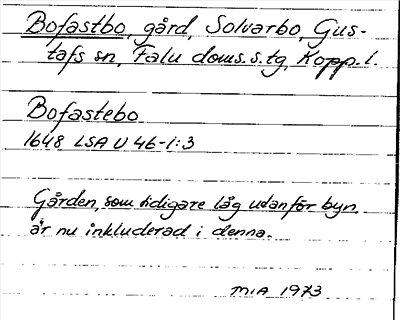 Bofastbo, gård, Solvarbo, Gus-
tafs sn, Falu doms.s.tg, Kopp.l.
Bofastebo
1648 LSA U 46-1:3
Gården, som tidigare låg utanför byn,
är nu inkluderad i denna.
MIA 1973